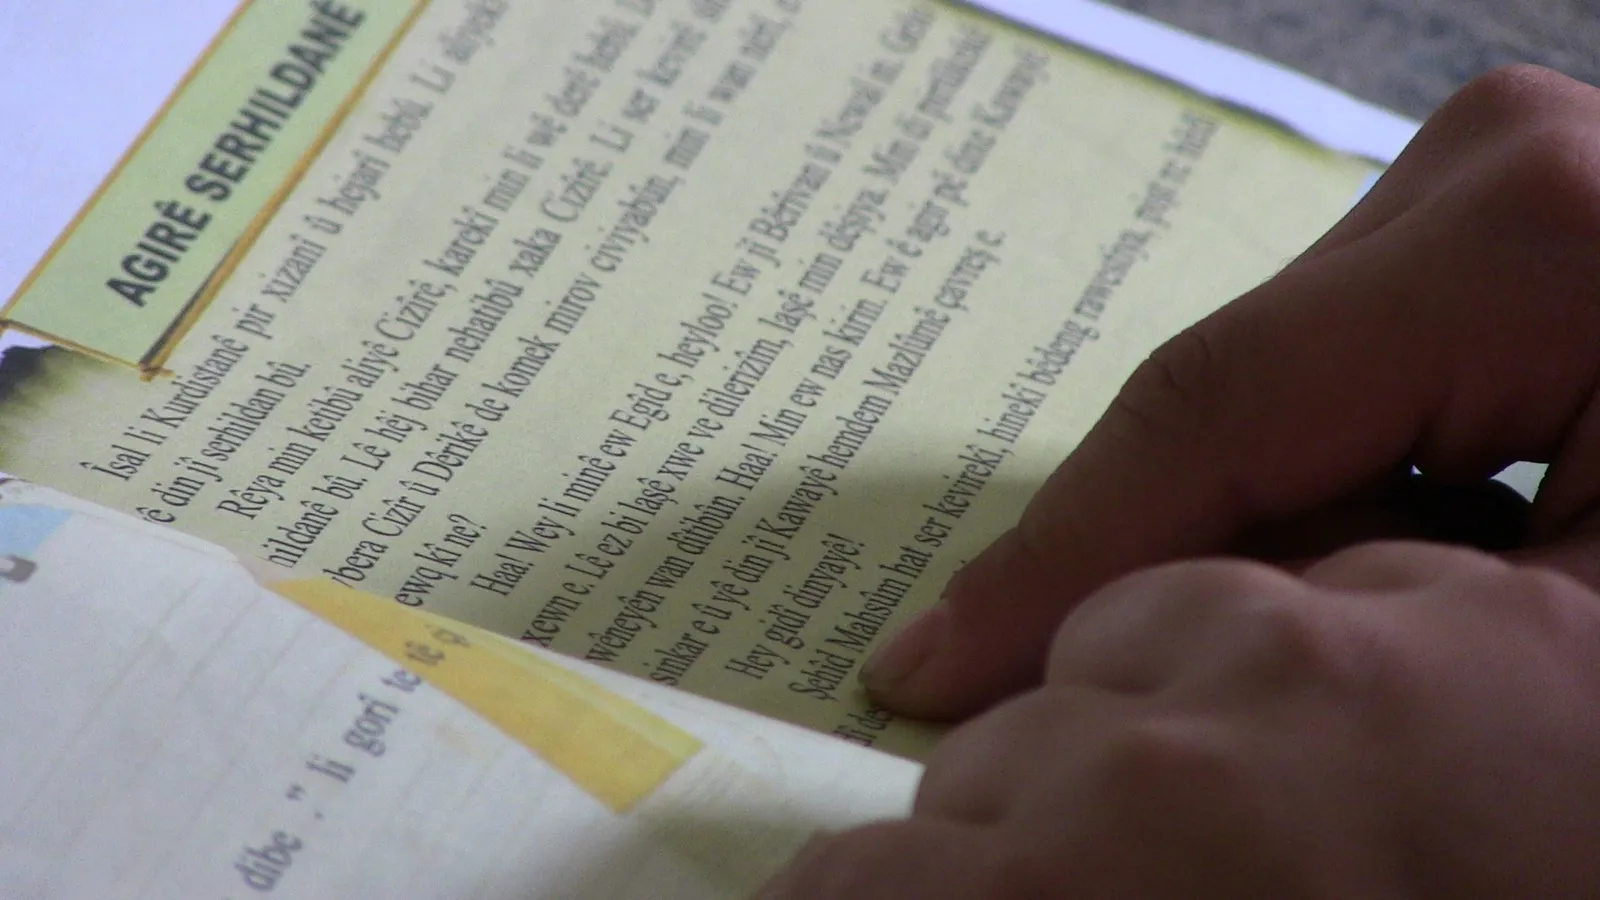 AGIRÊ SERHILDANÊ
Îsal li Kurdistanê pir xizanî û hejarî hebû. Li aliyekî
ê din jî serhildan bû.
Rêya min ketibû aliyê Cizîrê, karekî min li wê derê hebû.
hildanê bû. Lê hêj bihar nehatibû xaka Cizîrê. Li ser kevirê
bera Cizîr û Dêrikê de komek mirov civiyabûn, min li wan nêrî,
ewq kî ne?
Haa! Wey li minê ew Egîd e, heyloo! Ew jî Bêrîvan û Newal in.
xewn e. Lê ez bi laşê xwe ve dilerizîm, laşê min dêşiya. Min di
wêneyên wan dîtibûn. Haa! Min ew nas kirin. Ew ê agir pê dike Kawayê
sinkar e û yê din jî Kawayê hemdem Mazlûmê çavreş e.
Hey gidî dinyayê!
Şehîd Mahsûm hat ser kevirekî, hinekî bêdeng rawestiya,
dibe ." li gorî te tê çi